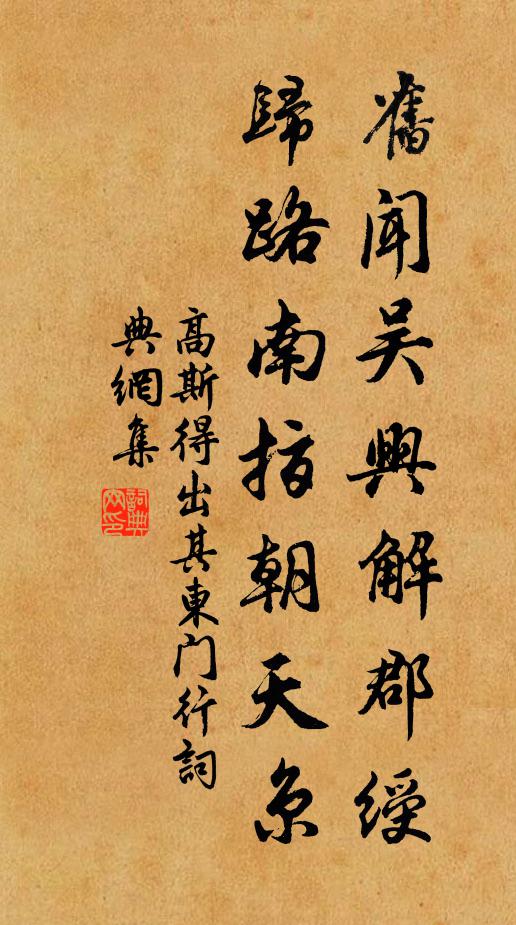 舊聞吳興解郡綬
歸路南指朝天京
高斯得出其東門行詞
典網集
詞典網印